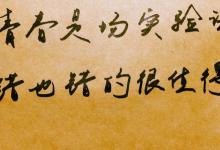 青春是场实验
错也错的很值得